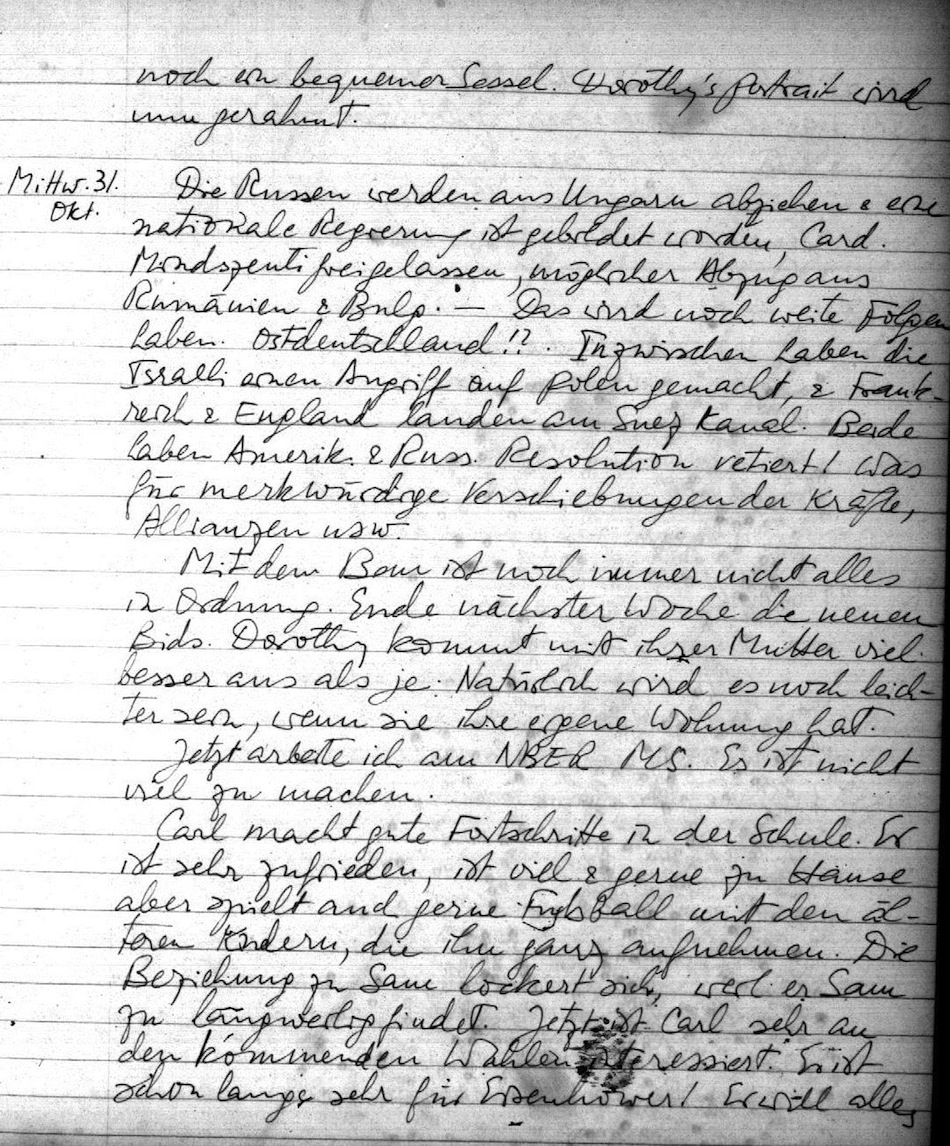 noch ein bequemer Sessel. Dorothy's Portrait wird
nun gerahmt.
Mittw. 31.
Okt.
Die Russen werden aus Ungarn abziehen & eine
nationale Regierung ist gebildet worden, Card.
Mindszenti freigelassen, möglicher Abzug aus
Rumänien & Bulg. — Das wird noch weite Folgen
haben. Ostdeutschland!?. Inzwischen haben die
Israeli einen Angriff auf Polen gemacht, & Frank-
reich & England landen am Suez Kanal. Beide
haben Amerik. & Russ. Resolution vetiert! Was
für merkwürdige Verschiebungen der Kräfte,
Allianzen usw.
Mit dem Bau ist noch immer nicht alles
in Ordnung. Ende nächster Woche die neuen
Bids. Dorothy kommt mit ihrer Mutter viel
besser aus als je. Natürlich wird es noch leich-
ter sein, wenn sie ihre eigene Wohnung hat.
Jetzt arbeite ich am NBER MS. Es ist nicht
viel zu machen.
Carl macht gute Fortschritte in der Schule. Er
ist sehr zufrieden, ist viel & gerne zu Hause
aber spielt auch gerne Fußball mit den äl-
teren Kindern, die ihn ganz aufnehmen. Die
Beziehung zu Sam lockert sich, weil er Sam
zu langweilig findet. Jetzt ist Carl sehr an
den kommenden Wahlen interessiert. Er ist
schon lange sehr für Eisenhower! Er will alles